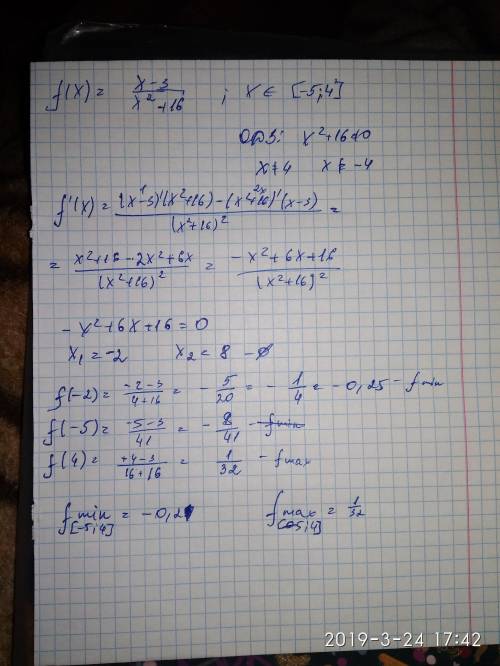 f(x) = x-3 / x²+16 ; x ∈ [-5;4]
ОДЗ: x²+16≠0
x≠4 x≠-4
f'(x) = (x-3)'(x²+16) - (x²+16)'(x-3) / (x²+16)² =
= x²+16-2x²+6x / (x²+16)² = -x²+6x+16 / (x²+16)²
-x²+6x+16=0
x₁=-2 x₂=8
f(-2) = -2-3 / 4+16 = - 5/20 = - 1/4 = -0,25 - fmin
f(-5) = -5-3 / 41 = - 8/41 - fmin
f(4) = +4-3 / 16+16 = 1/32 - fmax
f min [-5;4] = -0,2
f max [-5;4] = 1/32
2019-3-24 17:42